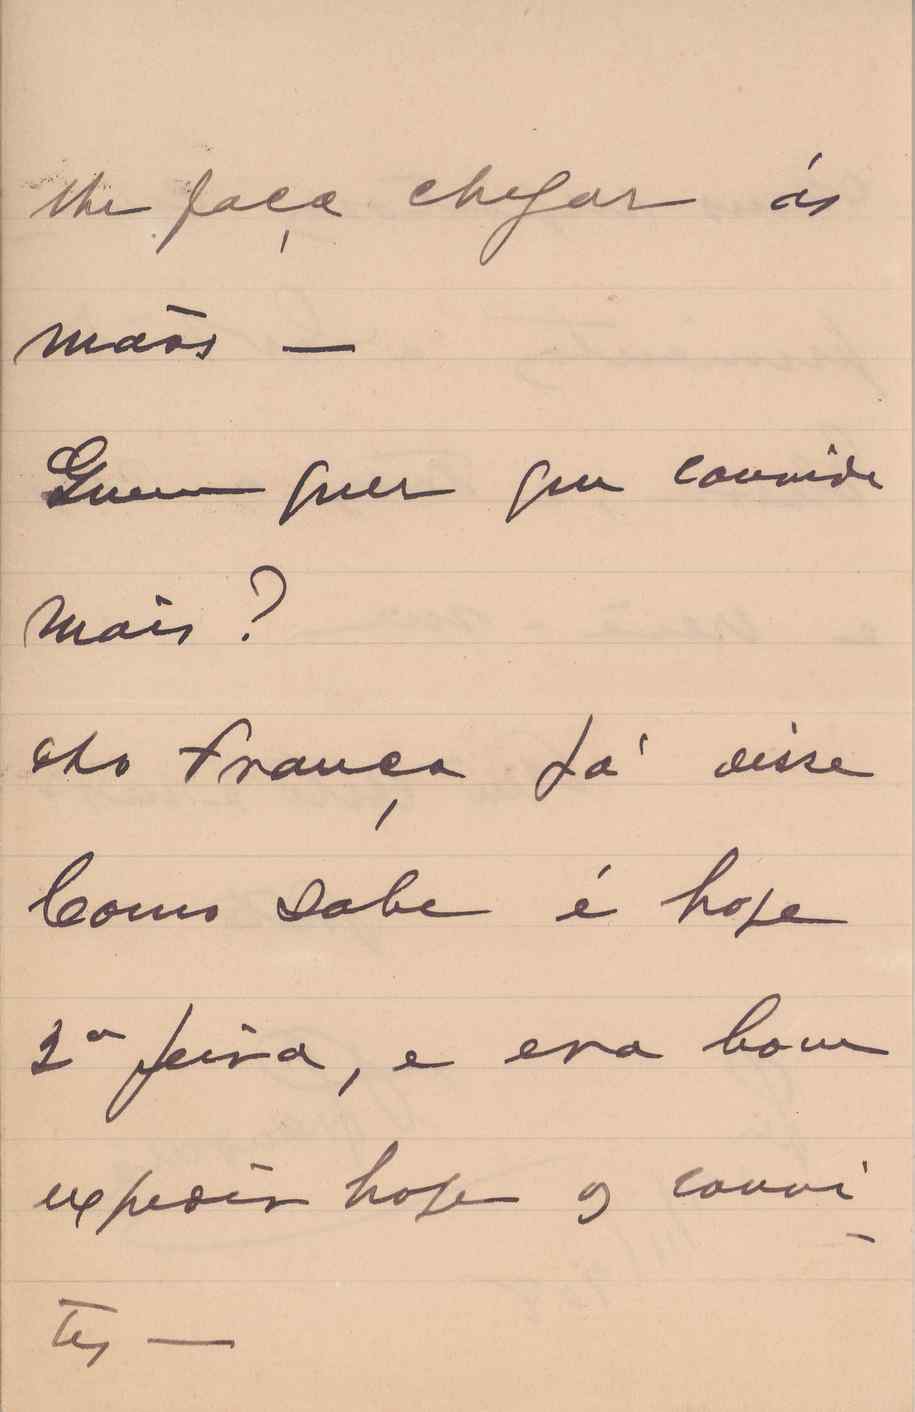 lhe faça chegar ás
mãos —
Quem quer que convide
mais?
Ao França já disse
Como sabe é hoje
2ª feira, e era bom
expedir hoje os convi-
tes —